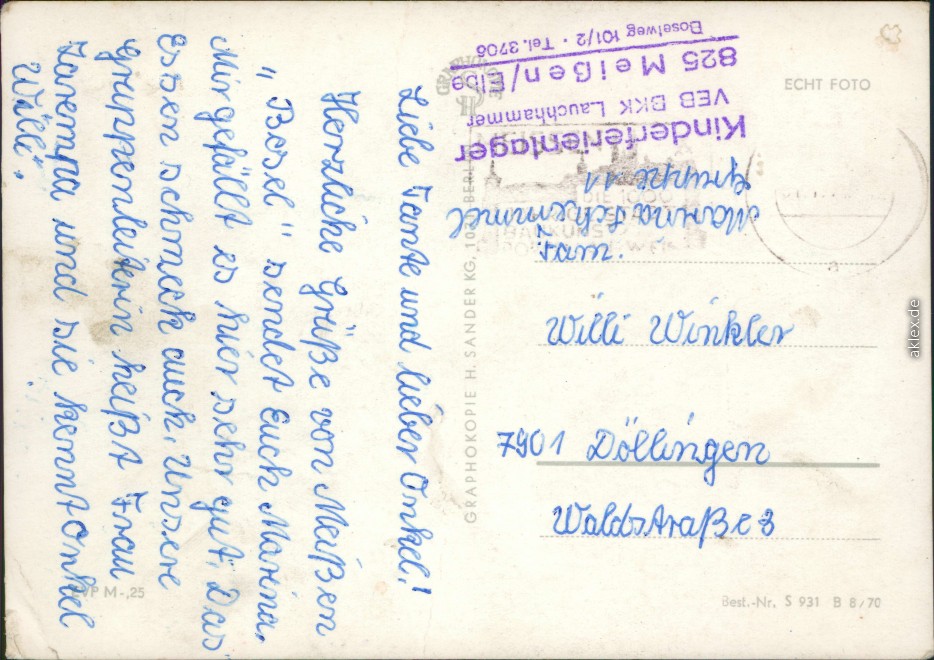 Liebe Tante und lieber Onkel!
Herzliche Grüße von Meißen
"Bosel" sendet Euch Marina.
Mir gefällt es hier sehr gut. Das
Essen schmeck auch. Unsere
Gruppenleiterin heißt Frau
Zarempa und sie kennt Onkel
Willi".
Kinderferienlager
VEB BKK Lauchhammer
825 Meißen/Elbe
Boselweg 101/2 · Tel. 3706
Marina Schemmel
Gruppe 11
ECHT FOTO
Willi Winkler
7901 Döllingen
Waldstraße 3
GRAPHOKOPIE H. SANDER KG, BERLIN
EVP M -,25
Best.-Nr. S 931 B 8/70
aklex.de